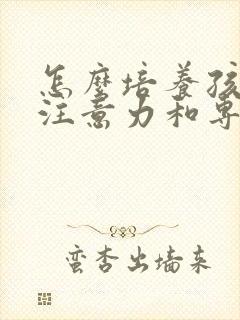 怎麼培養孩
注意力和專
蛮杏出墙来